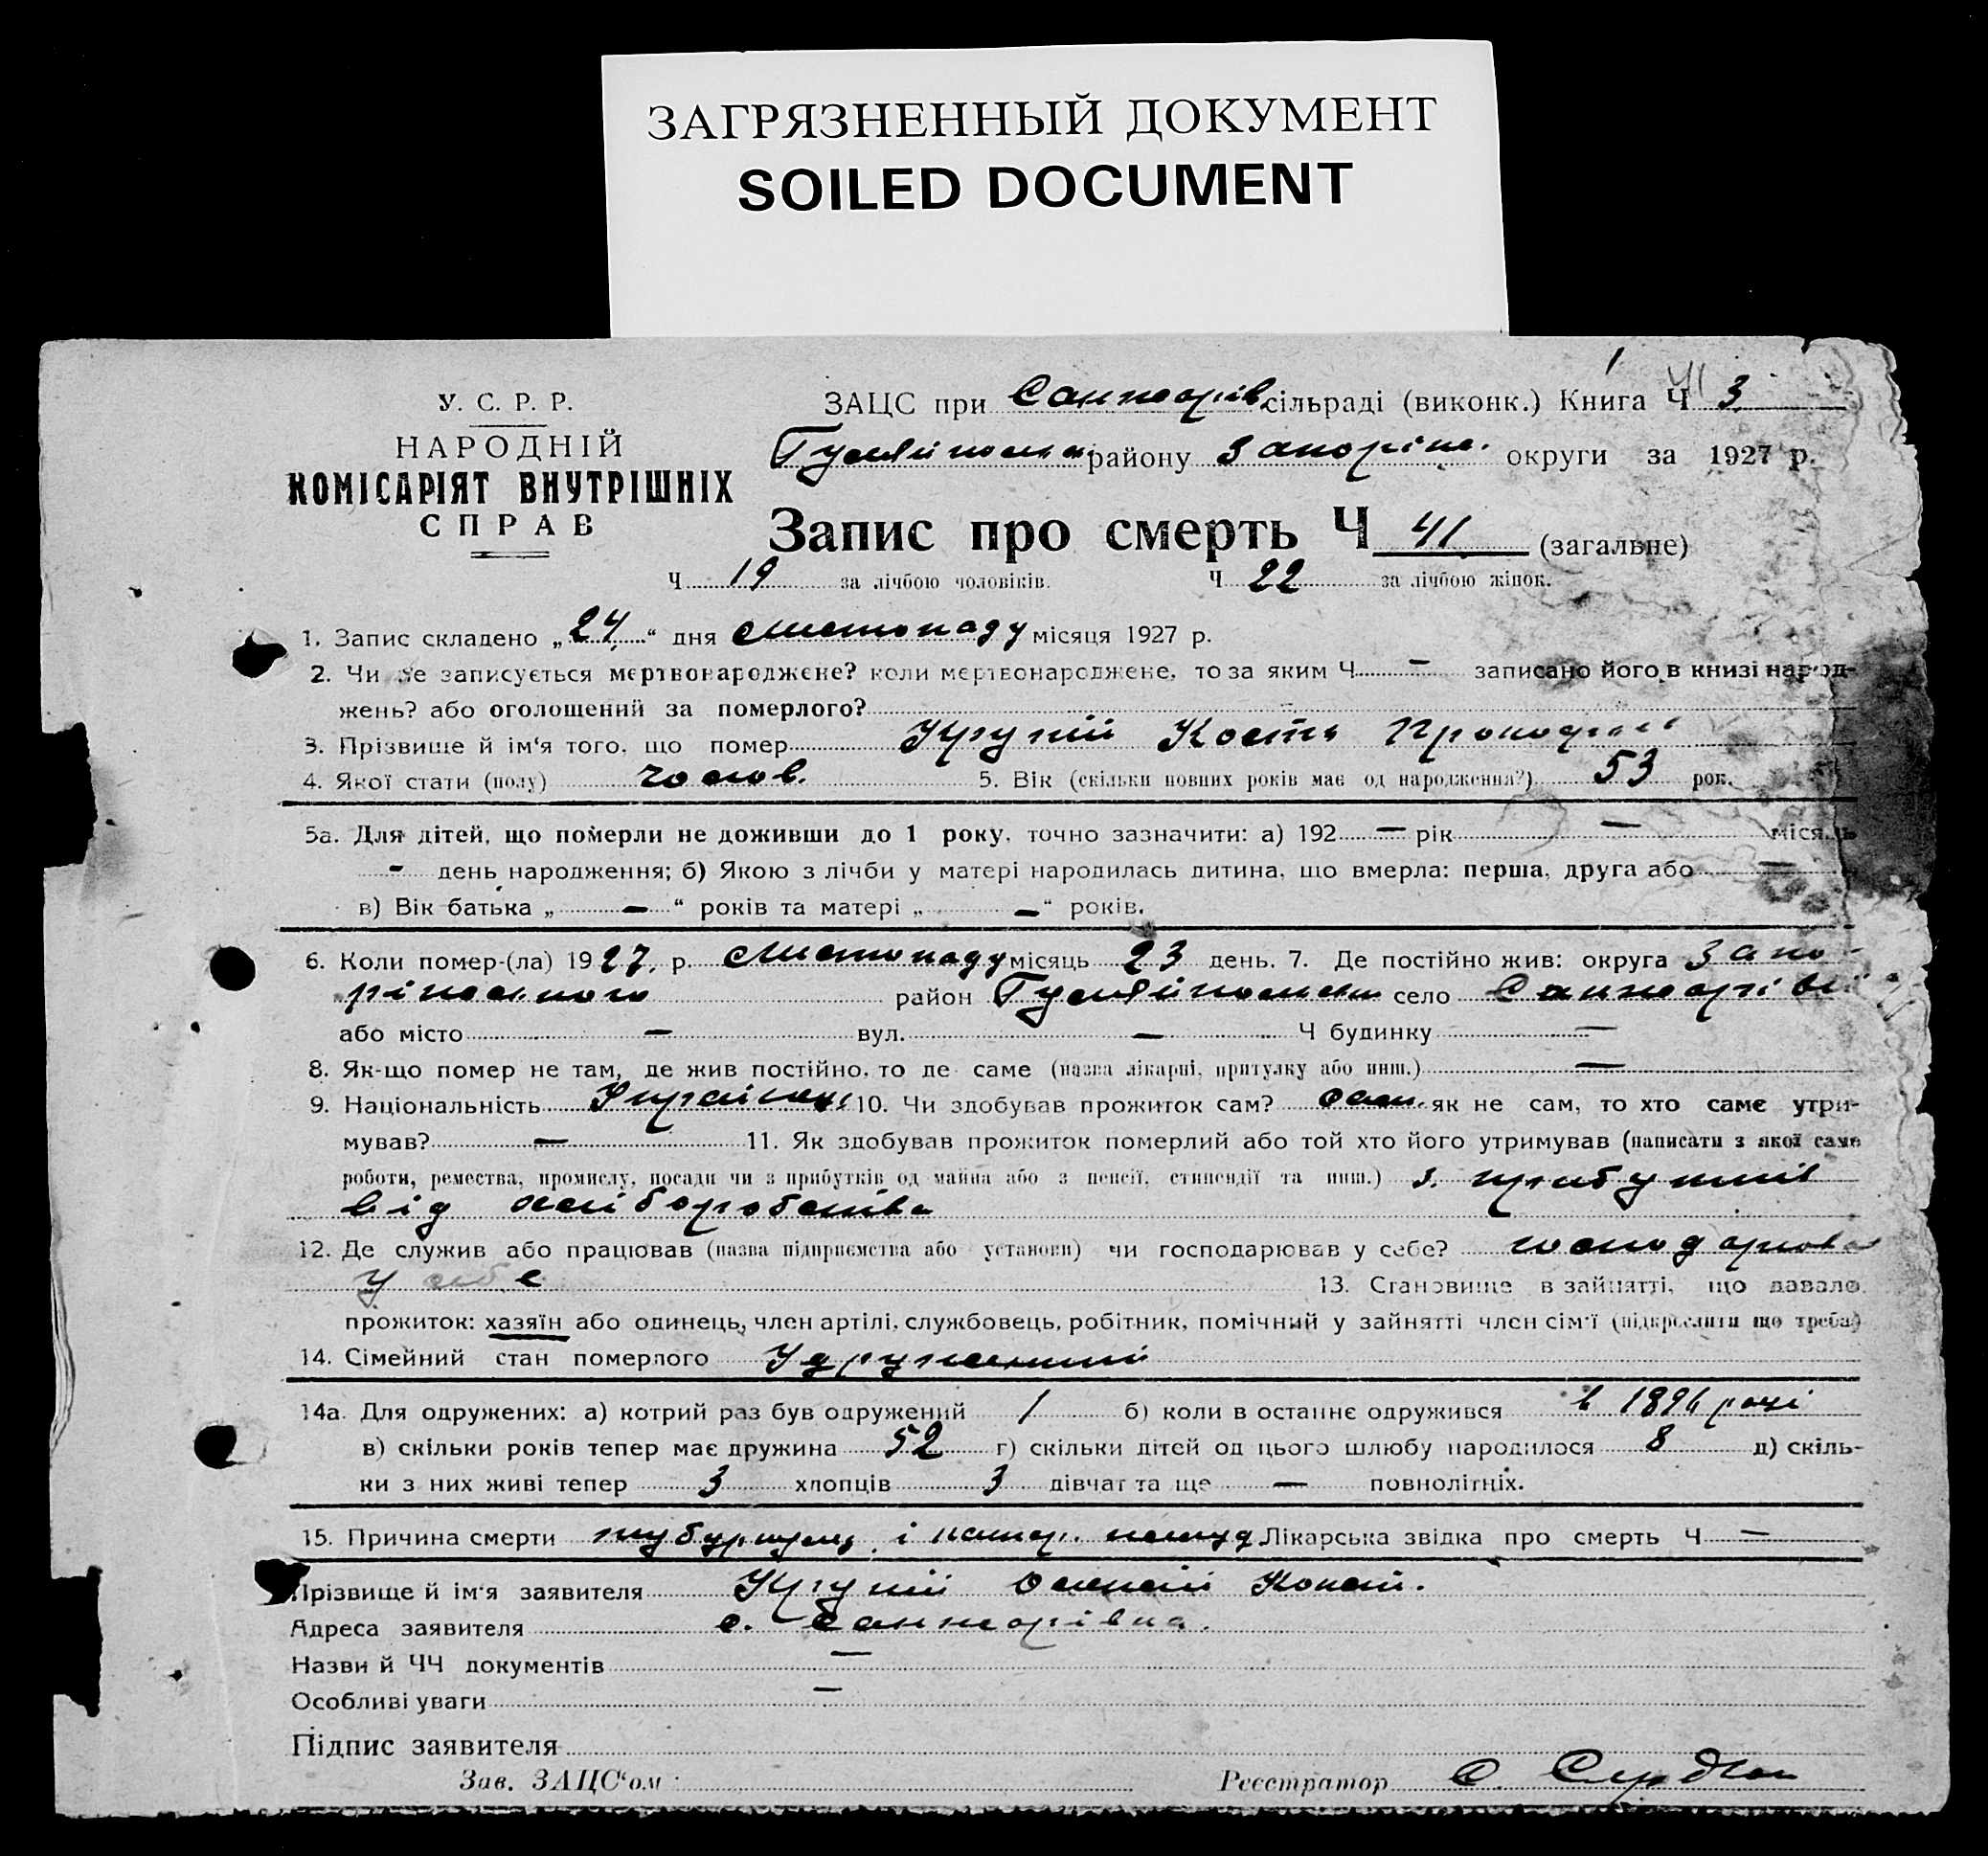 ЗАГРЯЗНЕННЫЙ ДОКУМЕНТ
SOILED DOCUMENT
У. С. Р. Р.
НАРОДНІЙ
КОМІСАРІЯТ ВНУТРІШНІХ
СПРАВ
ЗАЦС при Санжарів. сільраді (виконк.) Книга Ч 3
Гуляйпольськ. району Запоріж. округи за 1927 р.
Запис про смерть Ч 41 (загальне)
Ч 19 за лічбою чоловіків. Ч 22 за лічбою жінок.
1. Запис складено „24“ дня листопаду місяця 1927 р.
2. Чи не записується мертвонароджене? коли мертвонароджене, то за яким Ч — записано його в книзі народ-
жень? або оголошений за померлого?
3. Прізвище й ім‘я того, що помер Крупій Кость Прокофій
4. Якої стати (полу) чолов. 5. Вік (скільки повних років має од народження?) 53 рок.
5а. Для дітей, що померли не доживши до 1 року, точно зазначити: а) 192 — рік — місяць
- день народження; б) Якою з лічби у матері народилась дитина, що вмерла: перша, друга або —
в) Вік батька „ — “ років та матері „ — “ років.
6. Коли помер-(ла) 1927. р. листопаду місяць 23 день. 7. Де постійно жив: округа Запо-
ріжського район Гуляйпольськ село Санжарівці
або місто — вул. — Ч будинку —
8. Як-що помер не там, де жив постійно, то де саме (назва лікарні, притулку або инш.) —
9. Національність Українець 10. Чи здобував прожиток сам? сам. як не сам, то хто саме утри-
мував? — 11. Як здобував прожиток померлий або той хто його утримував (написати з якої саме
роботи, ремества, промислу, посади чи з прибутків од майна або з пенсії, стипендії та инш.) з прибутків
від хліборобства
12. Де служив або працював (назва підприємства або установи) чи господарював у себе? господарював
у себе 13. Становище в зайнятті, що давало
прожиток: хазяїн або одинець, член артілі, службовець, робітник, помічний у зайнятті член сім‘ї (підкреслити що треба)
14. Сімейний стан померлого Удружений
14а. Для одружених: а) котрий раз був одружений 1 б) коли в останнє одружився в 1896 році
в) скільки років тепер має дружина 52 г) скільки дітей од цього шлюбу народилося 8 д) скіль-
ки з них живі тепер 3 хлопців 3 дівчат та ще — повнолітніх.
15. Причина смерти і Лікарська звідка про смерть Ч —
Прізвище й ім‘я заявителя Крупій
Адреса заявителя с. Санжарівка.
Назви й ЧЧ документів —
Особливі уваги —
Підпис заявителя
Зав. ЗАЦС‘ом Реєстратор С.